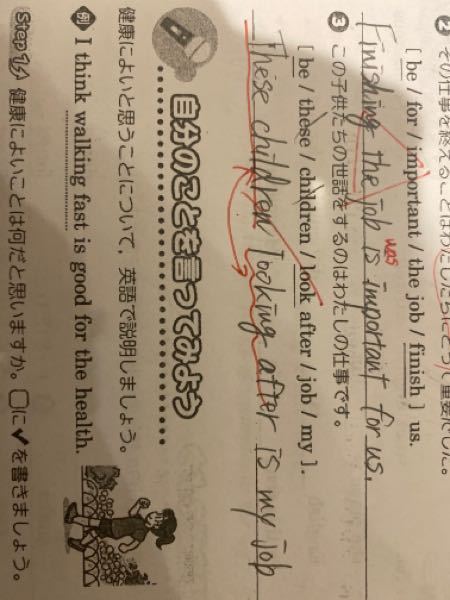 ② その仕事を終えることはわたしたちにとって重要でした。
[ be / for / important / the job / finish ] us.
Finishing the job is important for us.
was
③ この子供たちの世話をするのはわたしの仕事です。
[ be / these / children / look after / job / my ].
These children looking after is my job
自分のことを言ってみよう
健康によいと思うことについて，英語で説明しましょう。
例 I think walking fast is good for the health.
Step 1 健康によいことは何だと思いますか。□に✔を書きましょう。